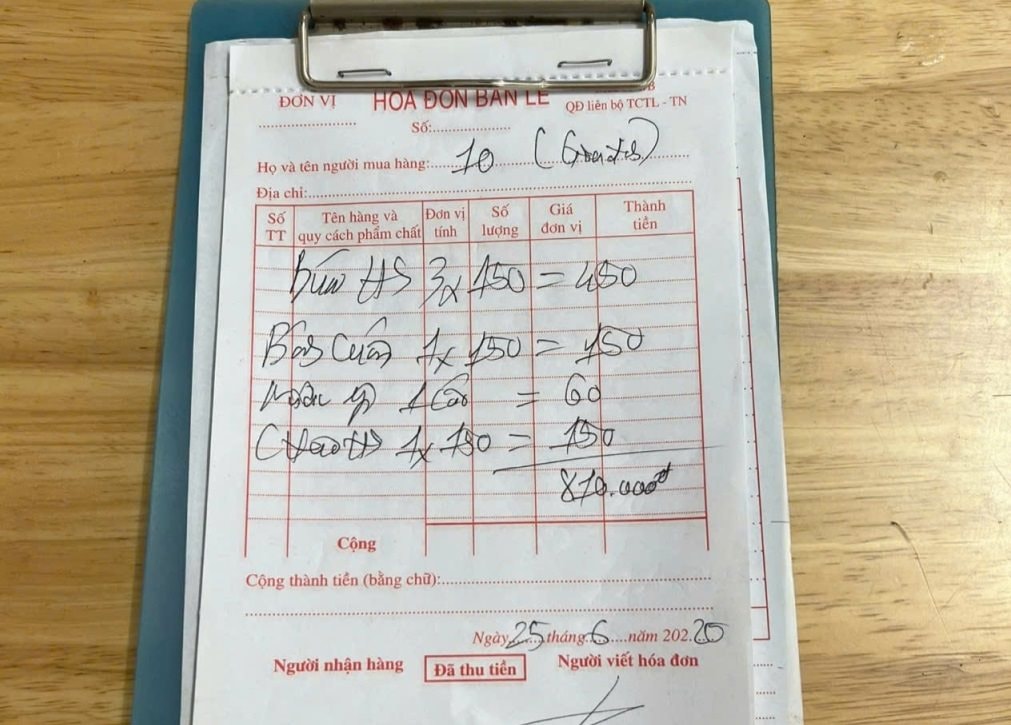 ĐƠN VỊ HÓA ĐƠN BÁN LẺ
QĐ liên bộ TCTL - TN
Số:
Họ và tên người mua hàng: 10
Địa chỉ:
Số TT Tên hàng và quy cách phẩm chất Đơn vị tính Số lượng Giá đơn vị Thành tiền
Bún HS 3x 150 = 450
1x 150 = 150
1 = 60
Cháo HS 1x 150 = 150
810.000đ
Cộng
Cộng thành tiền (bằng chữ):
Ngày 25 tháng 6 năm 202
Người nhận hàng Đã thu tiền Người viết hóa đơn